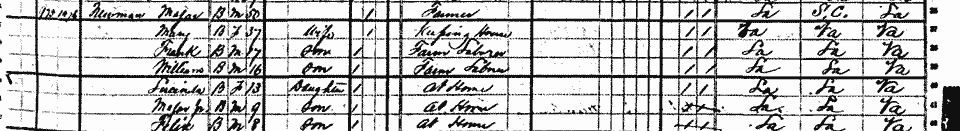 Newman Major B M 50 1 Farmer 1 1 La S.C. La
Mary B F 37 Wife 1 Keeping House 1 1 Va Va Va
Frank B M 17 Son 1 Farm Laborer 1 1 La La Va
William B M 16 Son 1 Farm Laborer 1 1 La La Va
Lucinda B F 13 Daughter 1 At Home 1 1 La La Va
Major Jr B M 9 Son 1 At Home La La Va
Felix B M 8 Son 1 At Home La La Va